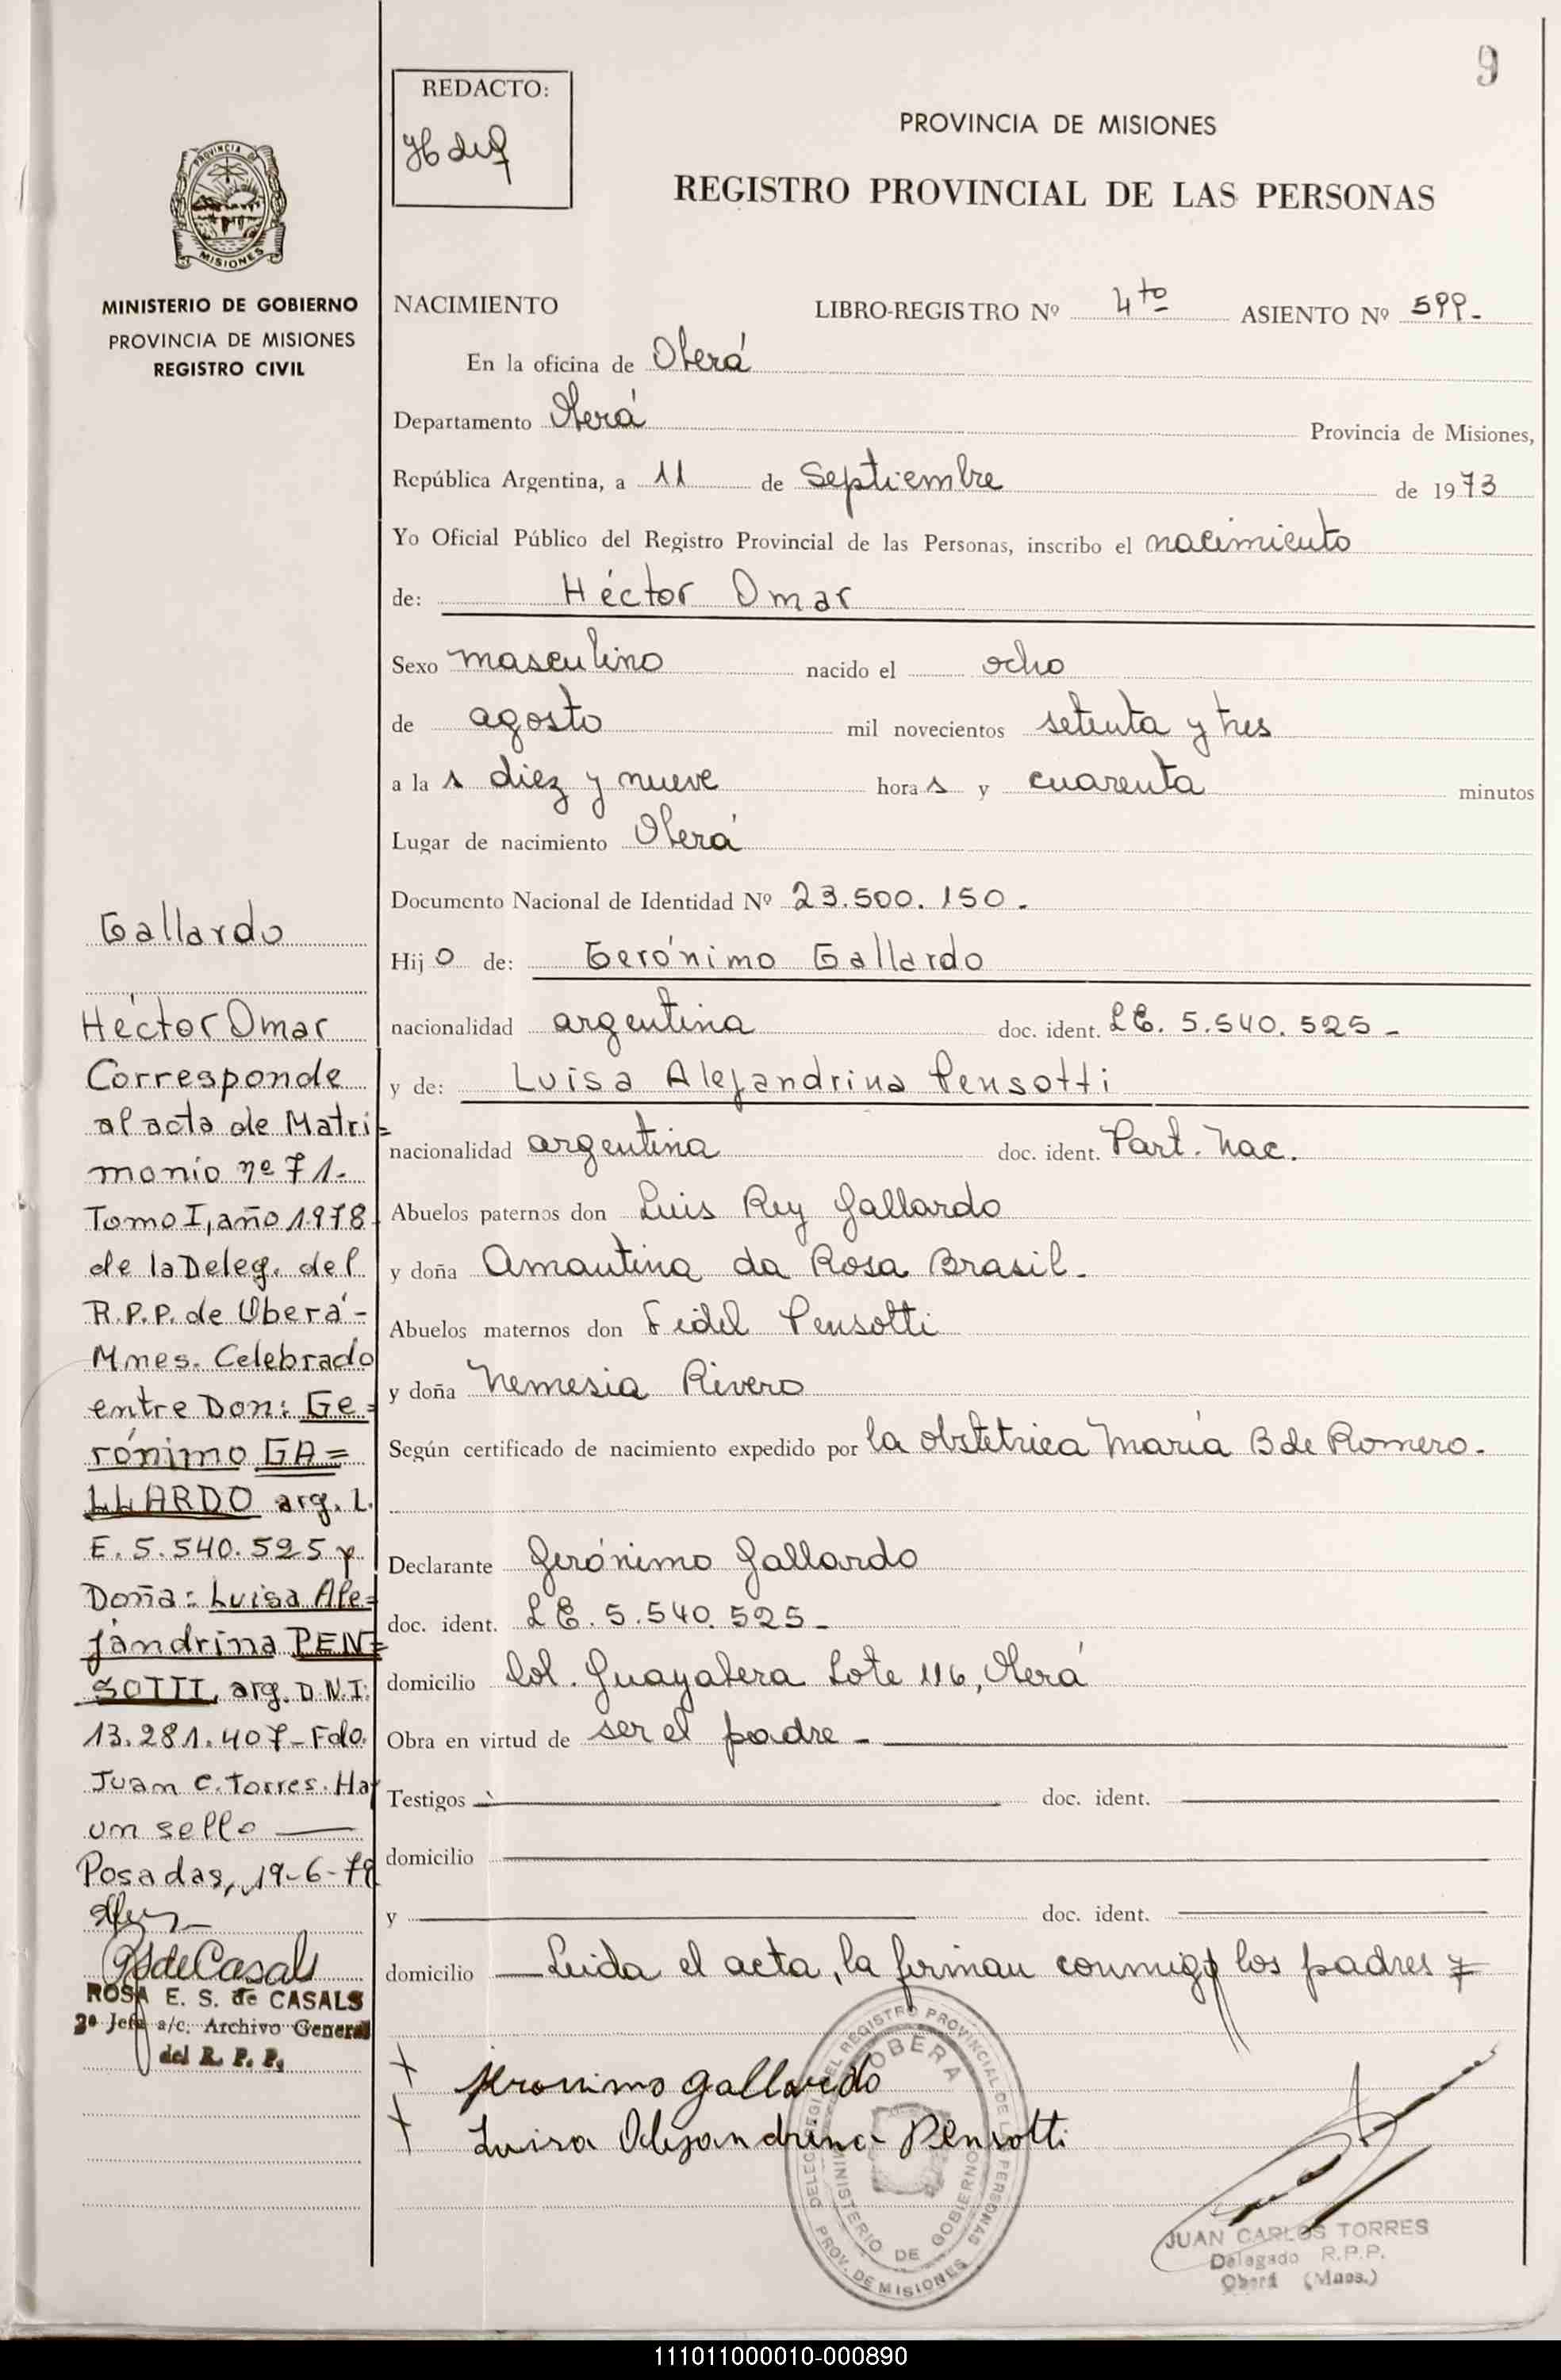 9
REDACTO:
PROVINCIA DE MISIONES
REGISTRO PROVINCIAL DE LAS PERSONAS
PROVINCIA DE
MISIONES
MINISTERIO DE GOBIERNO
PROVINCIA DE MISIONES
REGISTRO CIVIL
NACIMIENTO LIBRO-REGISTRO Nº 4to ASIENTO Nº 599.-
En la oficina de Oberá
Departamento Oberá Provincia de Misiones,
República Argentina, a 11 de Septiembre de 1973
Yo Oficial Público del Registro Provincial de las Personas, inscribo el nacimiento
de: Héctor Omar
Sexo masculino nacido el ocho
de agosto mil novecientos setenta y tres
a la s diez y nueve hora s y cuarenta minutos
Lugar de nacimiento Oberá
Documento Nacional de Identidad Nº 23.500.150.
Hij o de: Gerónimo Gallardo
nacionalidad argentina doc. ident. L E. 5.540.525-
y de: Luisa Alejandrina Pensotti
nacionalidad argentina doc. ident. Part. Nac.
Abuelos paternos don Luis Rey Gallardo
y doña Amantina da Rosa Brasil.
Abuelos maternos don Fidel Pensotti
y doña Nemesia Rivero
Según certificado de nacimiento expedido por la obstetrica María B de Romero.
Declarante Gerónimo Gallardo
doc. ident. L E. 5.540.525-
domicilio Col. Guayabera Lote 116, Oberá
Obra en virtud de ser el padre-
Testigos doc. ident.
domicilio
y doc. ident.
domicilio Leida el acta, la firman conmigo los padres
Jeronimo gallardo
Luisa Alejandrina Pensotti
DELEG. REGL. DEL REGISTRO PROVINCIAL DE LAS PERSONAS
OBERA
MINISTERIO DE GOBIERNO
PROV. DE MISIONES
JUAN CARLOS TORRES
Delegado R.P.P.
Oberá (Mnes.)
Gallardo
Héctor Omar
Corresponde
al acta de Matri=
monio nº 71.-
Tomo I, año 1978
de la Deleg. del
R.P.P. de Oberá-
Mnes. Celebrado
entre Don: Ge=
rónimo GA=
LLARDO arg. L.
E. 5.540.525 y
Doña: Luisa Ale=
jandrina PEN=
SOTTI, arg. D.N.I.
13.281.407- Fdo.
Juan C. Torres. Hay
un sello
Posadas, 19-6-79
RSdeCasals
ROSA E. S. de CASALS
2º Jefe a/c. Archivo General
del R. P. P.
111011000010-000890